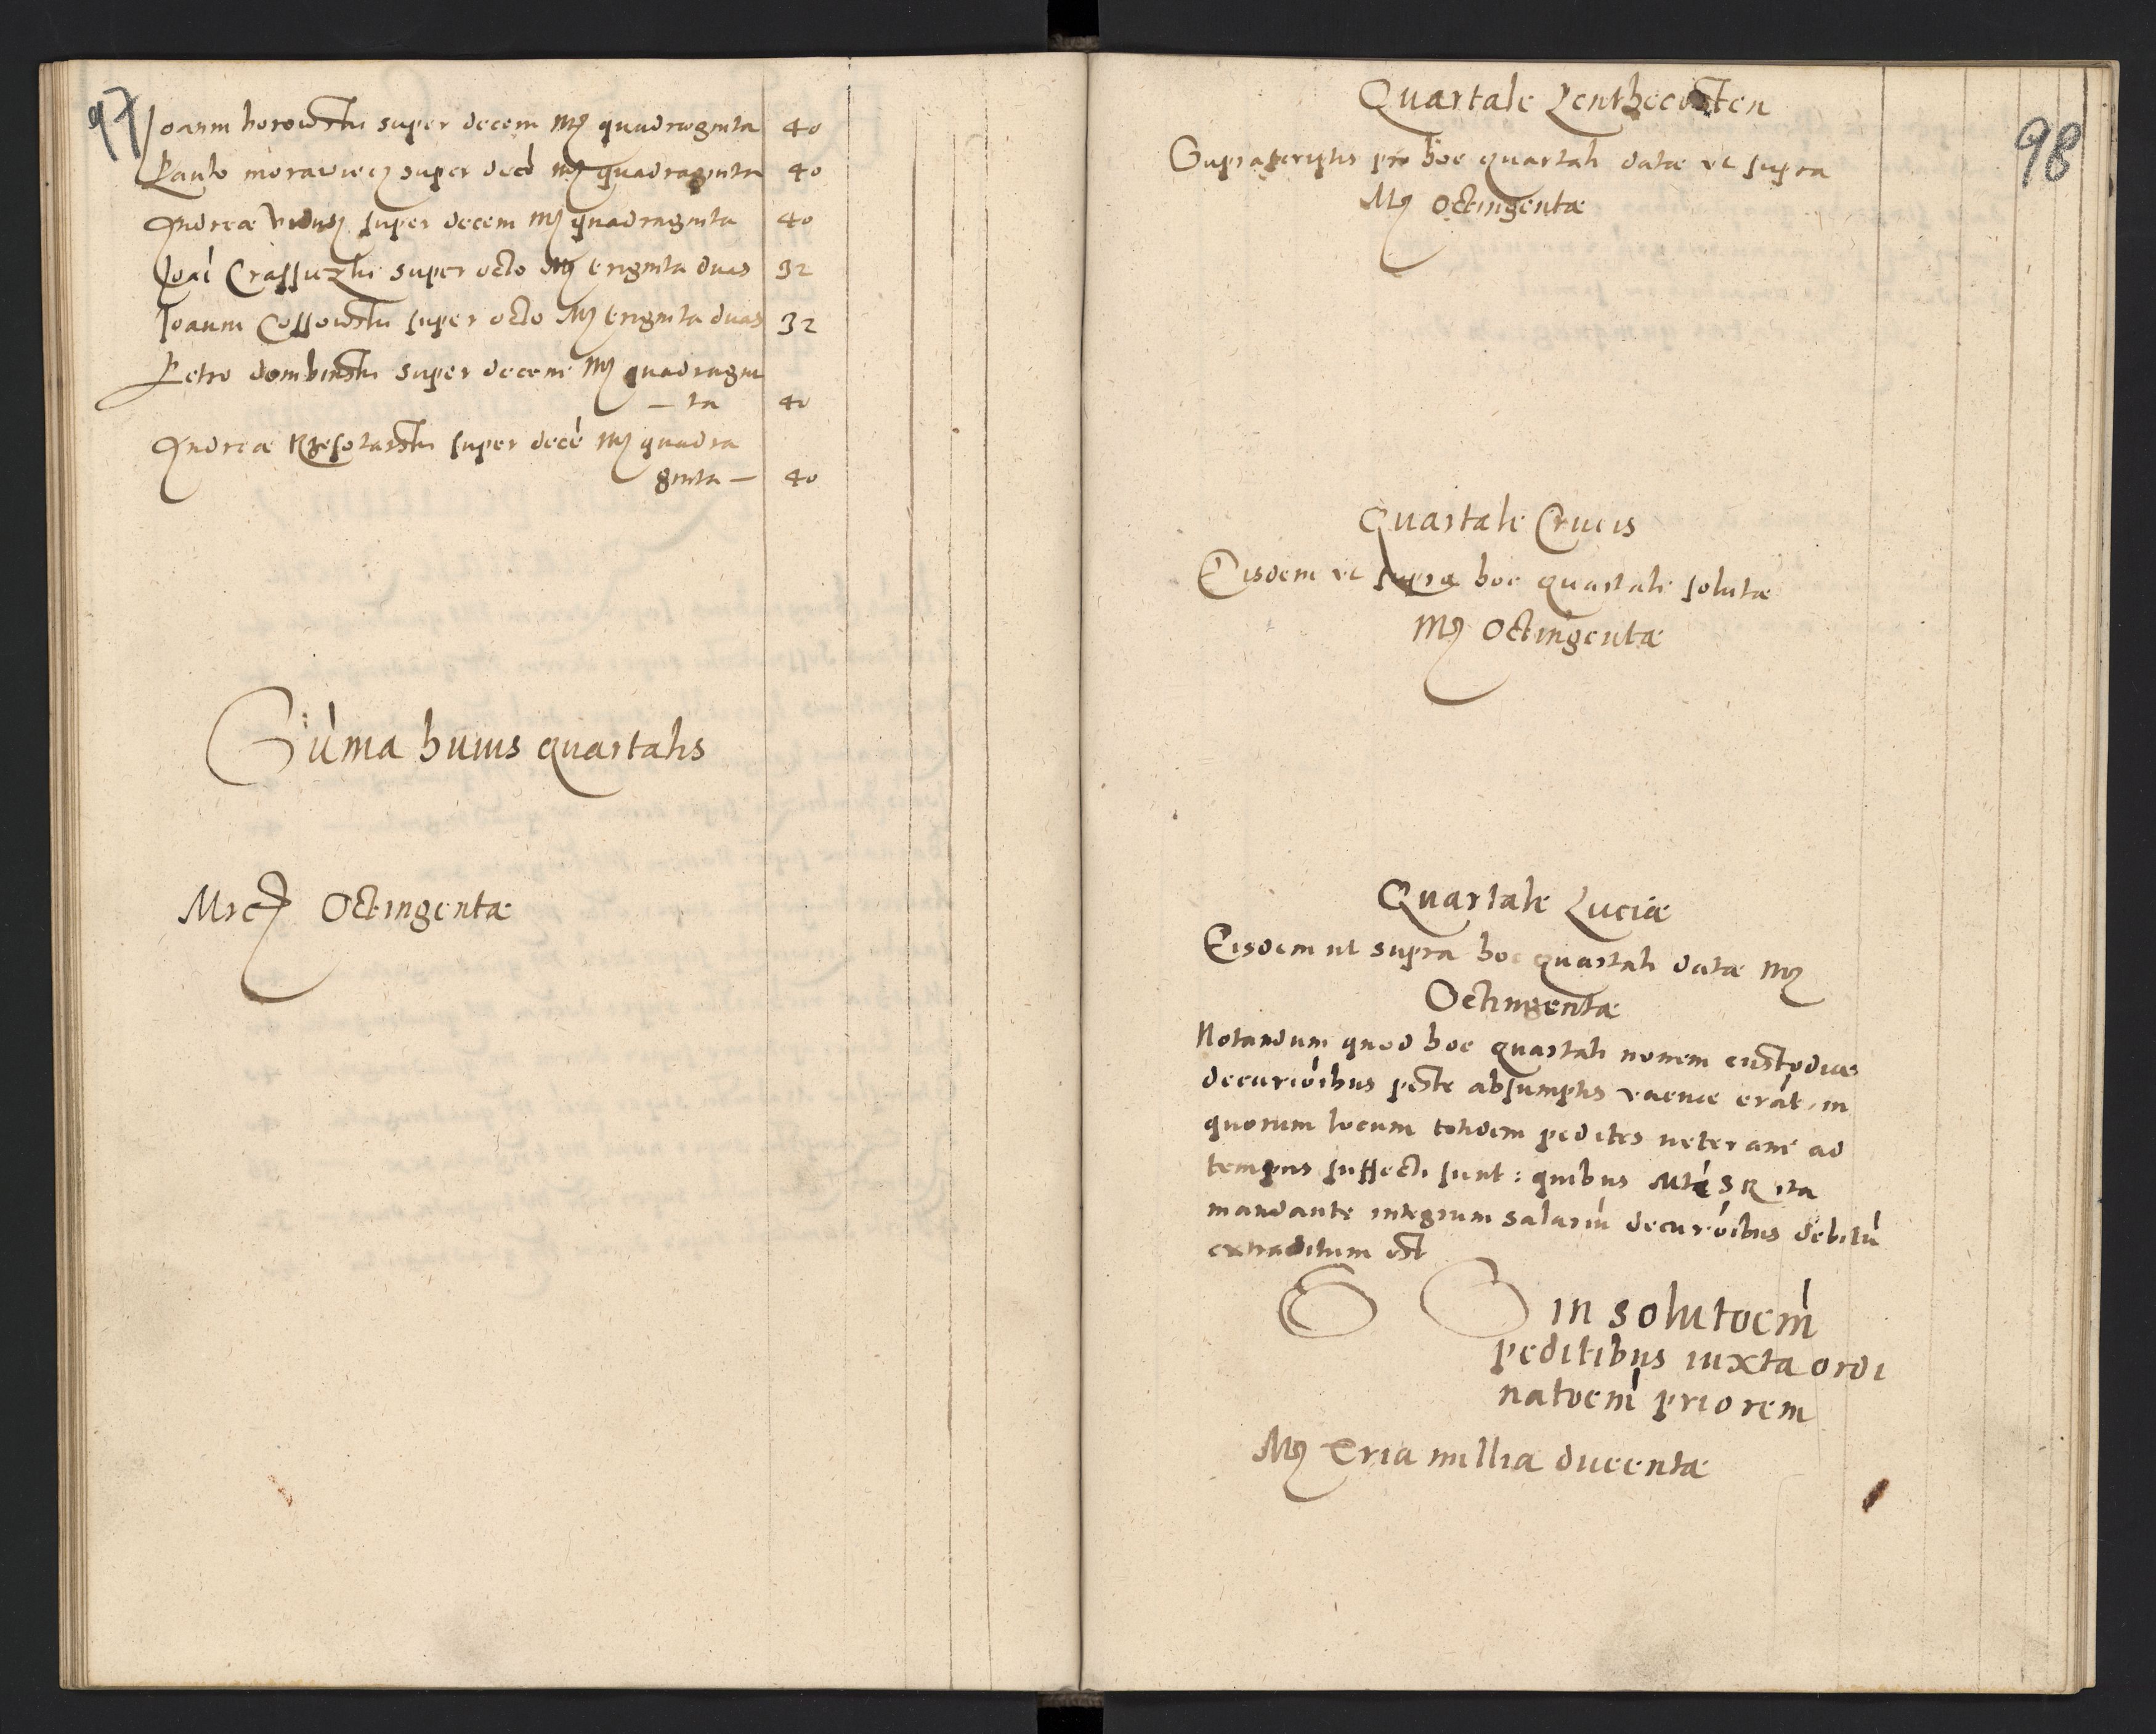 97
Joanni borowski super decem Mrc quadraginta 40
Paulo moraviecz super decé Mrc quadraginta 40
Andreæ super decem Mrc quadraginta 40
Joái Crassuzki super octo Mrc triginta duas 32
Joanni Cossowski super octo Mrc triginta duas 32
Petro dombinski super decem Mrc quadragin
– ta 40
Andreæ Rzesotarski super decé Mrc quadra
ginta – 40
Súma huius quartalis
Mrc Octingentæ
98
Quartale Penthecosten
Suprascriptis pro hoc quartali datæ vt supra
Mrc Octingentæ
Quartale Crucis
Eisdem vt supra hoc quartali solutæ
Mrc Octingentæ
Quartale Luciæ
Eisdem ut supra hoc quartali datæ Mrc
Octingentæ
Notandum quod hoc quartali novem custodiæ
decurióibus peste absumptis erát, in
quorum locum totidem pedites veterani ad
tempus suffecti sunt: quibus Mté S R ita
mandante integrum salariú decurióibus debitú
extraditum est
S S in solutoem
peditibus iuxta ordi
natoem priorem
Mrc tria millia ducentæ